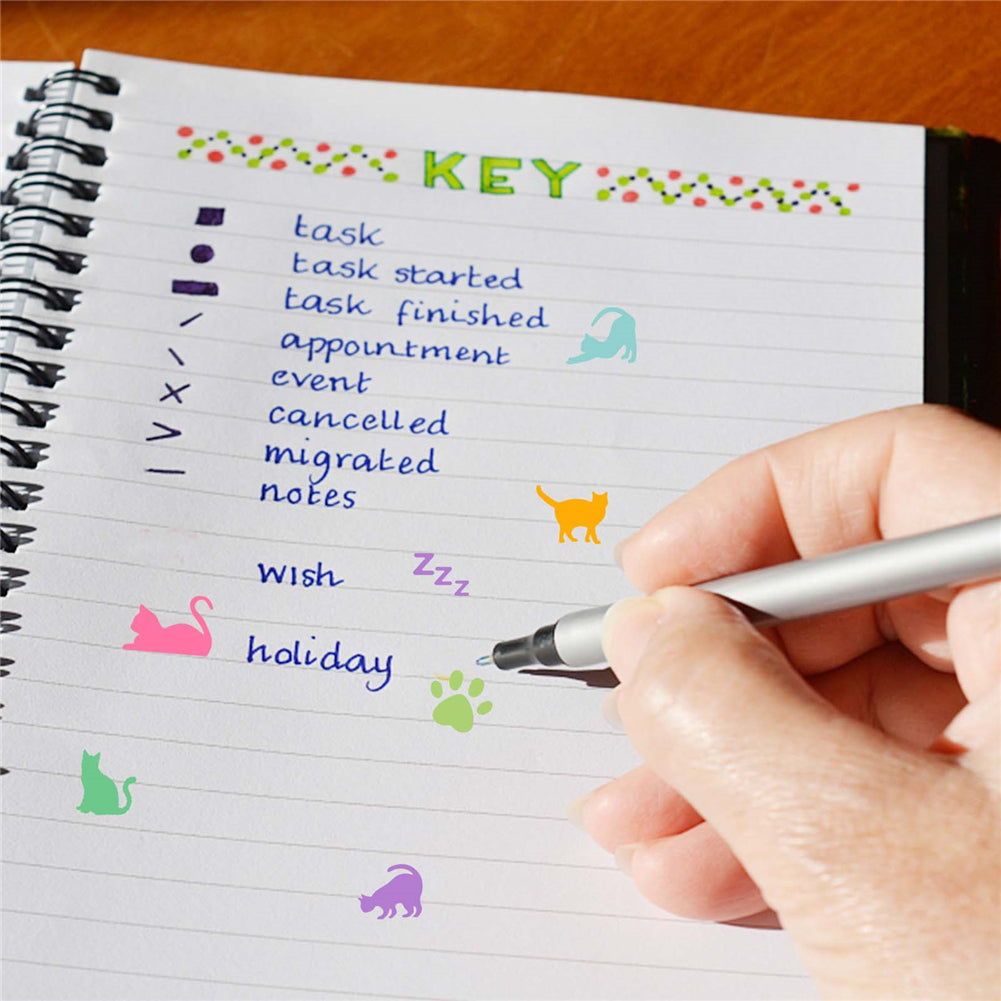 KEY
task
task started
task finished
appointment
event
cancelled
migrated
notes
wish
zzz
holiday